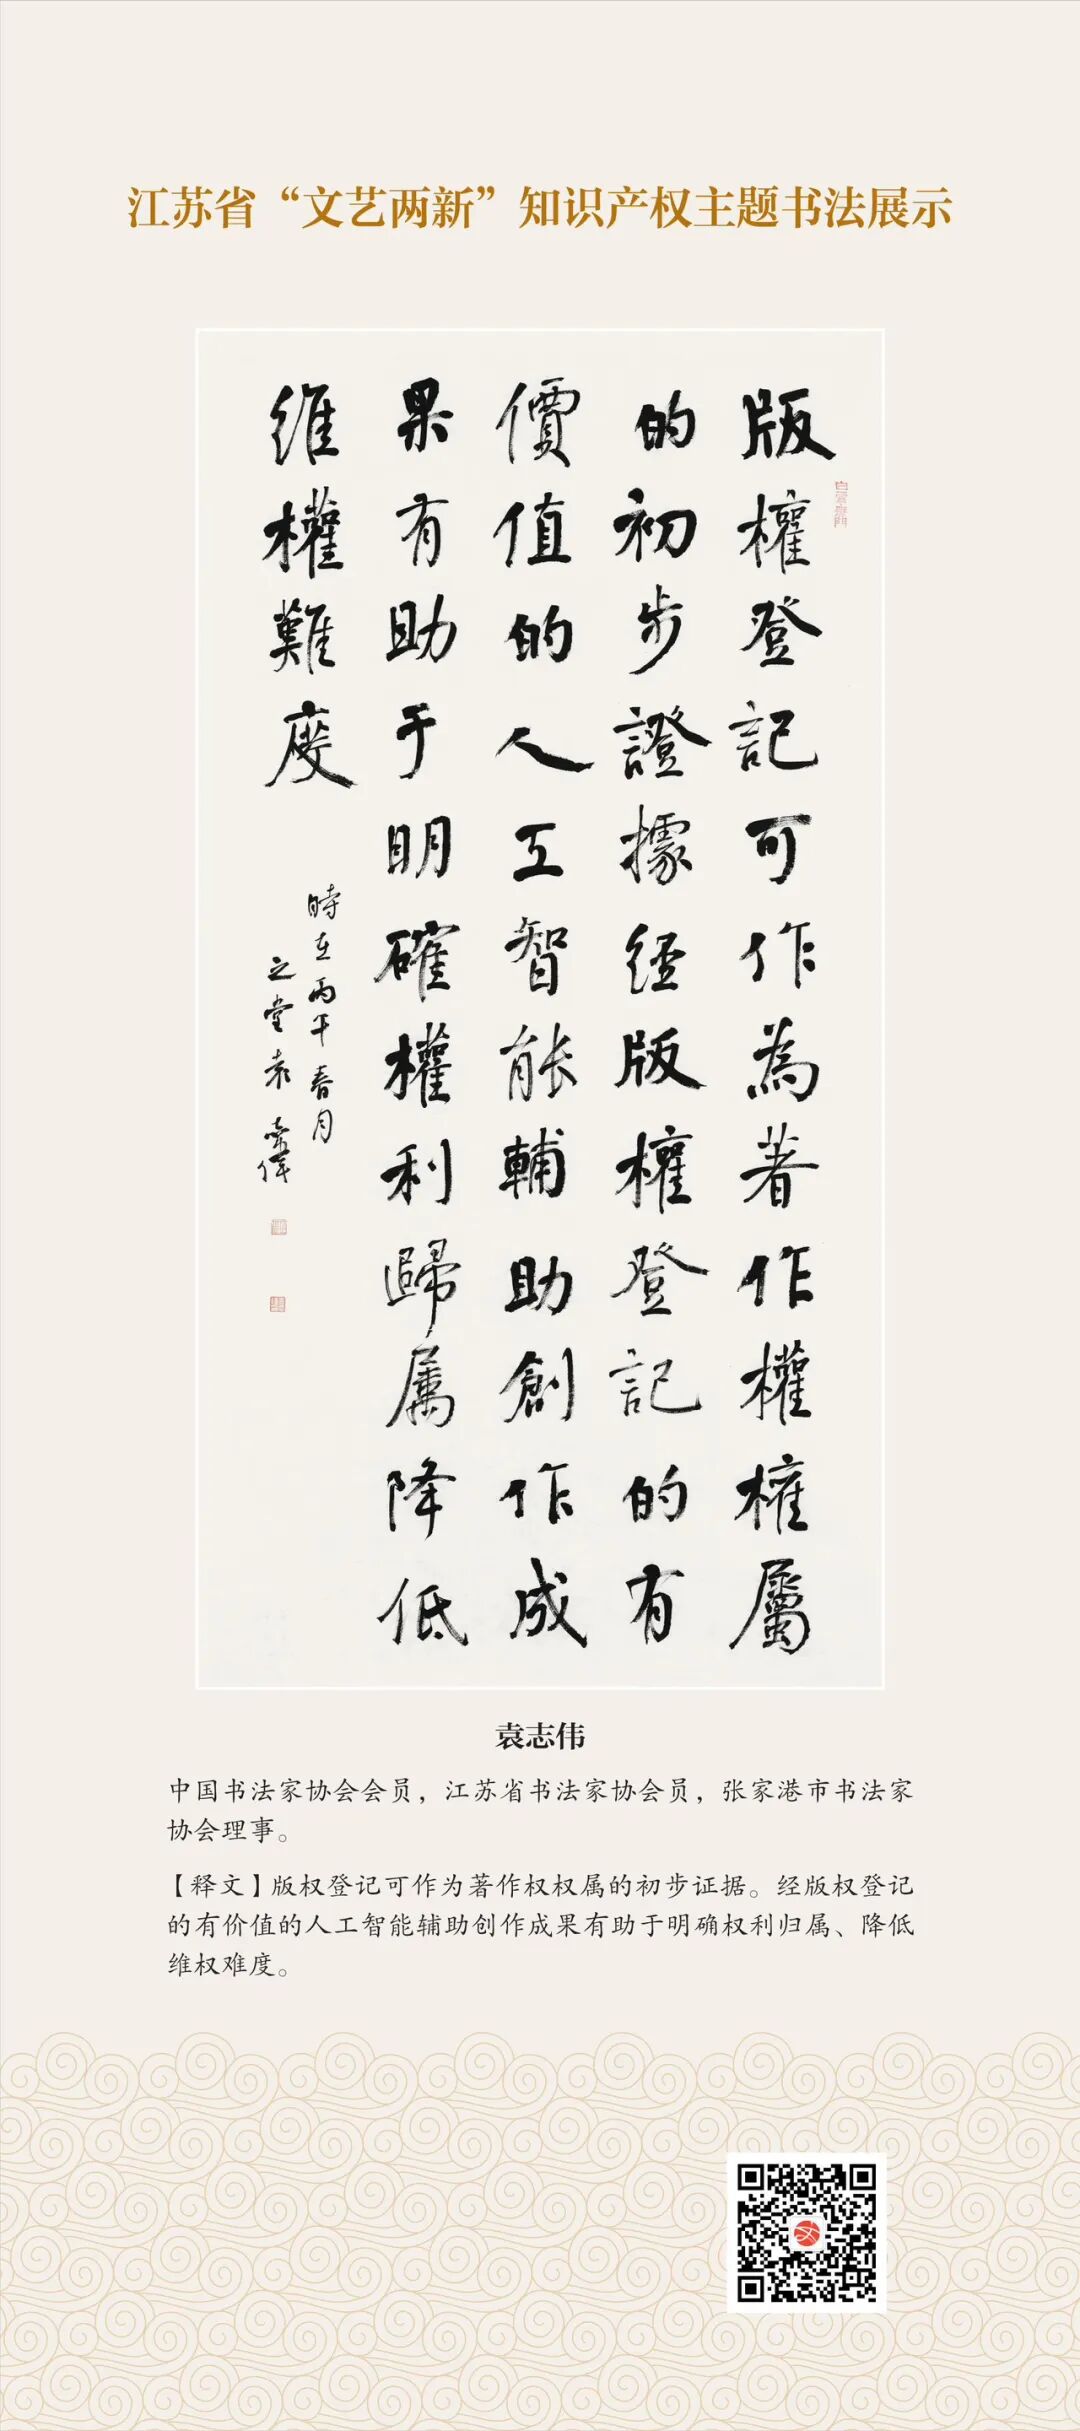 江苏省“文艺两新”知识产权主题书法展示
版權登記可作為著作權權屬
的初步證據經版權登記的有
價值的人工智能輔助創作成
果有助于明確權利歸属降低
維權難度
時在丙午春月
之堂袁志偉
袁志伟
中国书法家协会会员，江苏省书法家协会员，张家港市书法家
协会理事。
【释文】版权登记可作为著作权权属的初步证据。经版权登记
的有价值的人工智能辅助创作成果有助于明确权利归属、降低
维权难度。